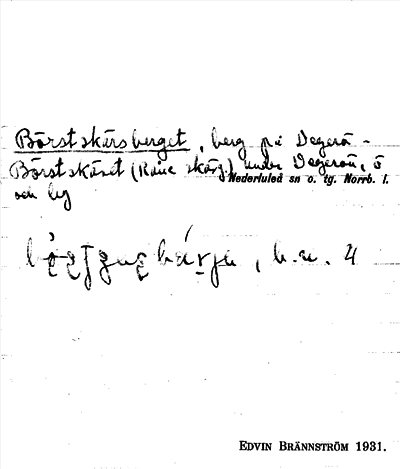 Börstskärsberget, berg på Degerö-
Börstskäret (Råne skärg.) under Degerön, ö
Nederluleå sn o. tg. Norrb. l.
och lg
, b. u. 4
EDVIN BRÄNNSTRÖM 1931.